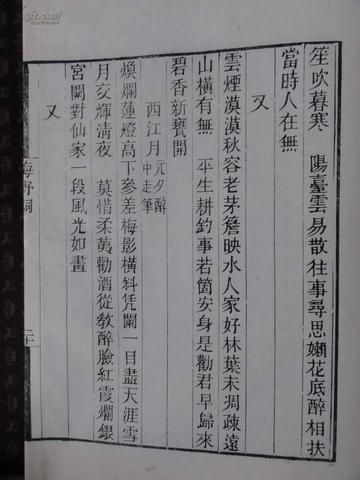 笙吹暮寒　陽臺雲易散往事尋思嬾花底醉相扶
當時人在無
又
雲煙漠漠秋容老茅簷映水人家好林葉未凋疎遠
山橫有無　平生耕釣事若箇安身是勸君早歸來
碧香新甕開
西江月元夕醉中走筆
煥爛蓮燈高下參差梅影橫斜凭闌一目盡天涯雪
月交輝清夜　莫惜柔荑勸酒從敎醉臉紅霞爛銀
宮闕對仙家一段風光如畫
又
梅野詞